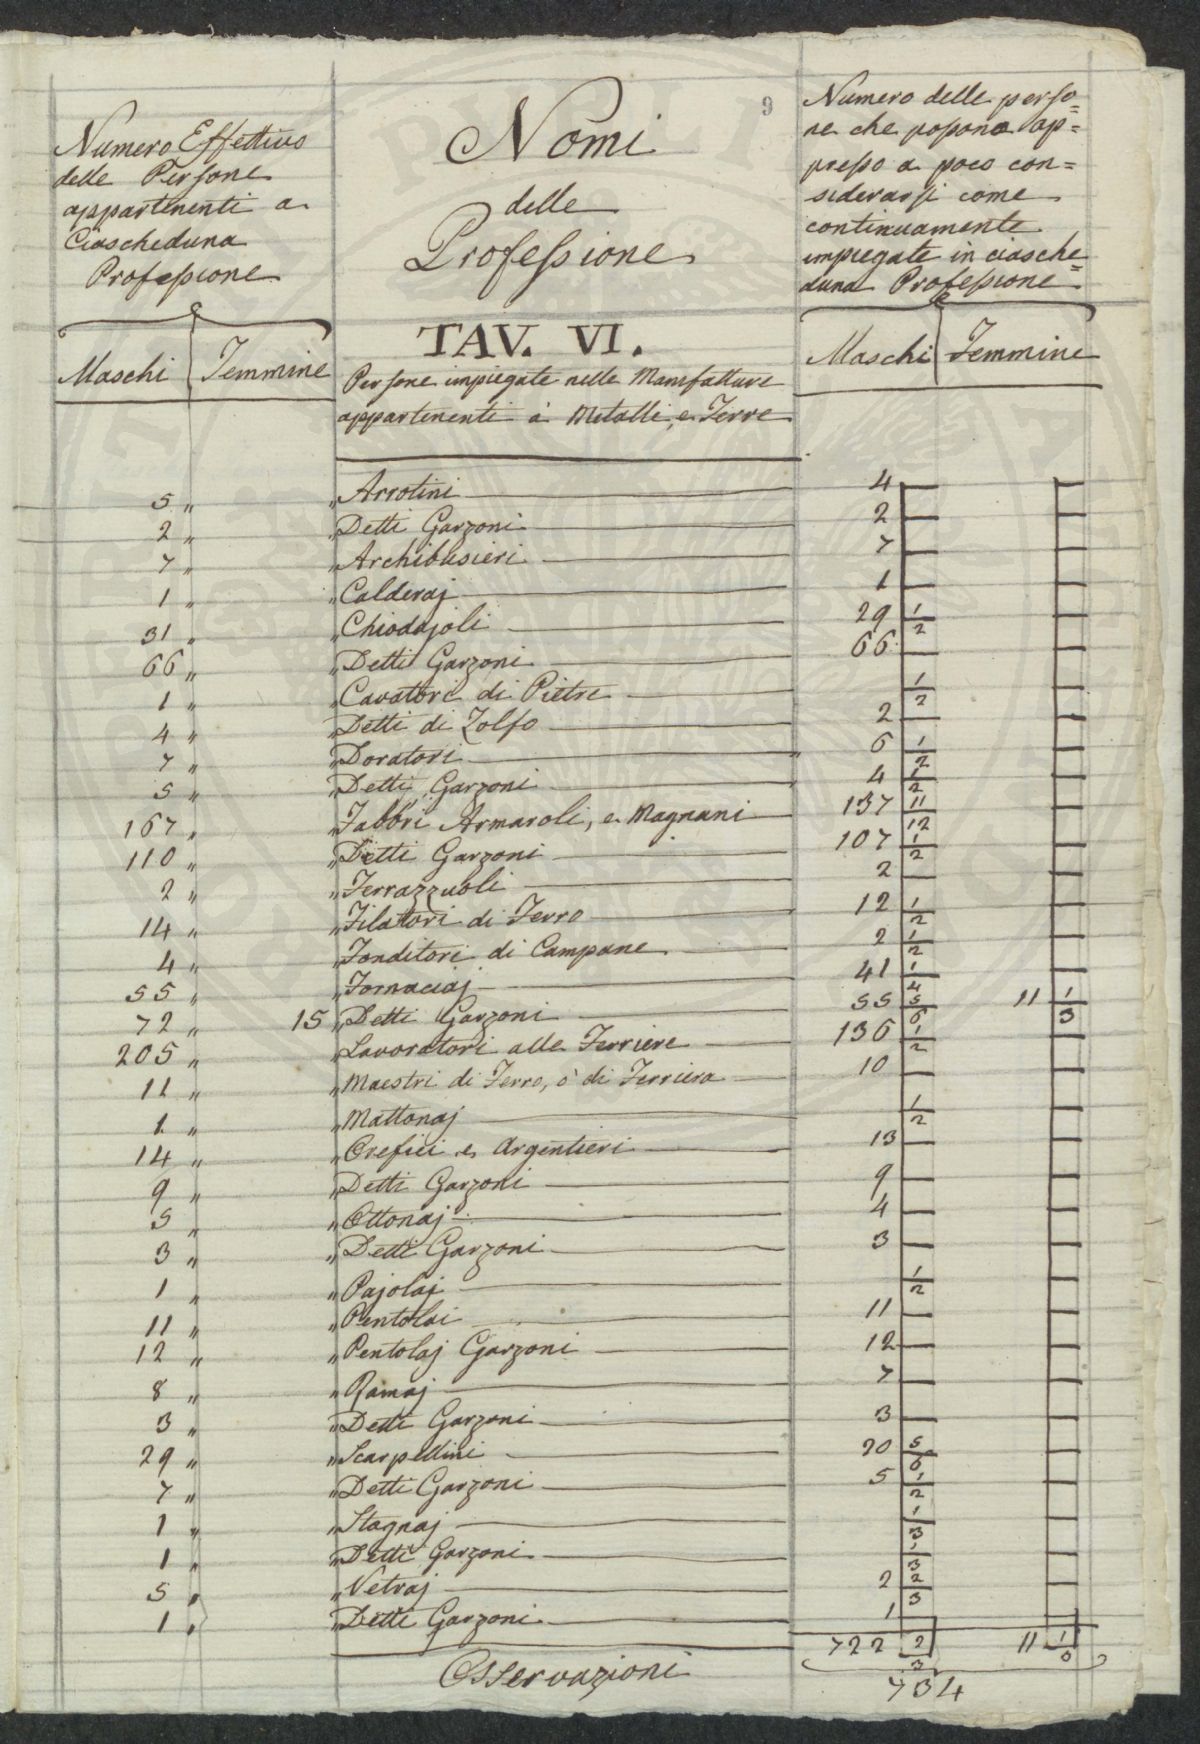 9
Numero Effettivo
delle Persone
appartenenti a
Ciascheduna
Professione
Nomi
delle
Professione
Numero delle perso=
ne che possono ap=
presso a poco con=
siderarsi come
continuamente
impiegate in ciasche=
duna Professione
Maschi Femmine
TAV. VI.
Persone impiegate nelle Manifatture
appartenenti a Metalli, e Terre
Maschi Femmine
5 „ „ Arrotini 4 —
2 „ „ Detti Garzoni 2 —
7 „ „ Archibusieri 7 —
1 „ „ Calderaj 1 —
31 „ „ Chiodajoli 29 1/2 —
66 „ „ Detti Garzoni 66 —
1 „ „ Cavatori di Pietre 1/2 —
4 „ „ Detti di Zolfo 2 —
7 „ „ Doratori 6 1/2 —
5 „ „ Detti Garzoni 4 1/2 —
167 „ „ Fabbri Armaroli, e Magnani 137 11/12 —
110 „ „ Detti Garzoni 107 1/2 —
2 „ „ Ferrazzuoli 2 —
14 „ „ Filatori di Ferro 12 1/2 —
4 „ „ Fonditori di Campane 2 1/2 —
55 „ „ Fornaciaj 41 1/4 —
72 „ 15 „ Detti Garzoni 55 5/6 11 1/3
205 „ „ Lavoratori alle Ferriere 136 1/2 —
11 „ „ Maestri di Ferro, ò di Ferriera 10 —
1 „ „ Mattonaj 1/2 —
14 „ „ Orefici e Argentieri 13 —
9 „ „ Detti Garzoni 9 —
5 „ „ Ottonaj 4 —
3 „ „ Detti Garzoni 3 —
1 „ „ Pajolaj 1/2 —
11 „ „ Pentolai 11 —
12 „ „ Pentolaj Garzoni 12 —
8 „ „ Ramaj 7 —
3 „ „ Detti Garzoni 3 —
29 „ „ Scarpellini 20 5/6 —
7 „ „ Detti Garzoni 5 1/2 —
1 „ „ Stagnaj 1/3 —
1 „ „ Detti Garzoni 1/3 —
5 „ „ Vetraj 2 2/3 —
1 „ „ Detti Garzoni 1
722 2/3 11 1/3
Osservazioni
734